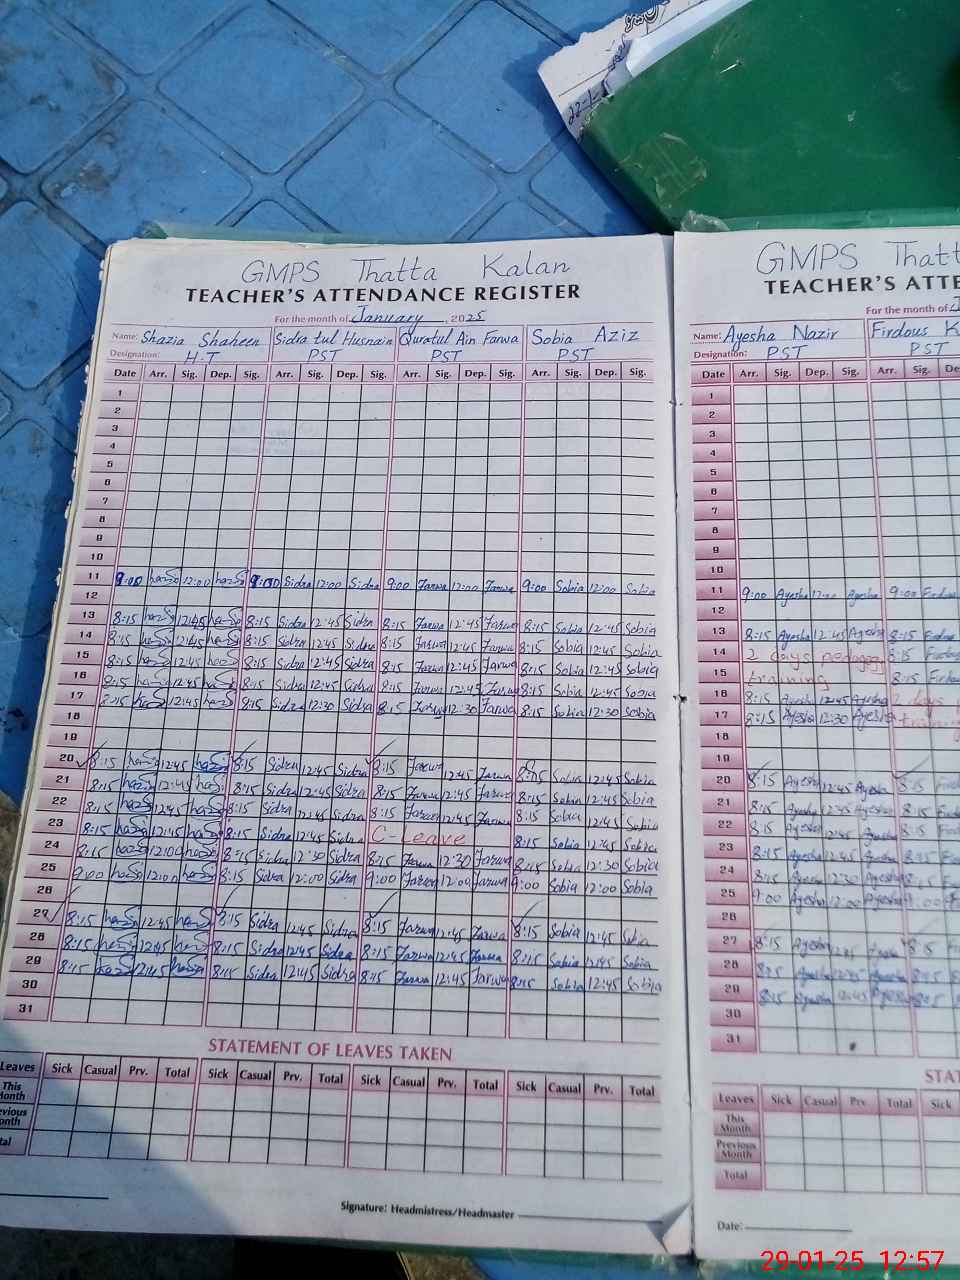 22-1-
GMPS Thatta Kalan
TEACHER'S ATTENDANCE REGISTER
For the month of January, 2025
Name: Shazia Shaheen Sidra tul Husnain Quratul Ain Farwa Sobia Aziz
Designation: H.T PST PST PST
Date Arr. Sig. Dep. Sig. Arr. Sig. Dep. Sig. Arr. Sig. Dep. Sig. Arr. Sig. Dep. Sig.
1
2
3
4
5
6
7
8
9
10
11 9:00 12:00 9:00 Sidra 12:00 Sidra 9:00 Farwa 12:00 Farwa 9:00 Sobia 12:00 Sobia
12
13 8:15 12:45 8:15 Sidra 12:45 Sidra 8:15 Farwa 12:45 Farwa 8:15 Sobia 12:45 Sobia
14 8:15 12:45 8:15 Sidra 12:45 Sidra 8:15 Farwa 12:45 Farwa 8:15 Sobia 12:45 Sobia
15 8:15 12:45 8:15 Sidra 12:45 Sidra 8:15 Farwa 12:45 Farwa 8:15 Sobia 12:45 Sobia
16 8:15 12:45 8:15 Sidra 12:45 Sidra 8:15 Farwa 12:45 Farwa 8:15 Sobia 12:45 Sobia
17 8:15 12:45 8:15 Sidra 12:30 Sidra 8:15 Farwa 12:30 Farwa 8:15 Sobia 12:30 Sobia
18
19
20 8:15 12:45 8:15 Sidra 12:45 Sidra 8:15 Farwa 12:45 Farwa 8:15 Sobia 12:45 Sobia
21 8:15 12:45 8:15 Sidra 12:45 Sidra 8:15 Farwa 12:45 Farwa 8:15 Sobia 12:45 Sobia
22 8:15 12:45 8:15 Sidra 12:45 Sidra 8:15 Farwa 12:45 Farwa 8:15 Sobia 12:45 Sobia
23 8:15 12:45 8:15 Sidra 12:45 Sidra C-Leave 8:15 Sobia 12:45 Sobia
24 8:15 12:00 8:15 Sidra 12:30 Sidra 8:15 Farwa 12:30 Farwa 8:15 Sobia 12:30 Sobia
25 9:00 12:00 8:15 Sidra 12:00 Sidra 9:00 Farwa 12:00 Farwa 9:00 Sobia 12:00 Sobia
26
27 8:15 12:45 8:15 Sidra 12:45 Sidra 8:15 Farwa 12:45 Farwa 8:15 Sobia 12:45 Sobia
28 8:15 12:45 8:15 Sidra 12:45 Sidra 8:15 Farwa 12:45 Farwa 8:15 Sobia 12:45 Sobia
29 8:15 12:45 8:15 Sidra 12:45 Sidra 8:15 Farwa 12:45 Farwa 8:15 Sobia 12:45 Sobia
30
31
STATEMENT OF LEAVES TAKEN
Leaves Sick Casual Prv. Total Sick Casual Prv. Total Sick Casual Prv. Total Sick Casual Prv. Total
This Month
evious onth
tal
Signature: Headmistress/Headmaster
GMPS Thatt
TEACHER'S ATTE
For the month of J
Name: Ayesha Nazir Firdous K
Designation: PST PST
Date Arr. Sig. Dep. Sig. Arr. Sig. De
1
2
3
4
5
6
7
8
9
10
11 9:00 Ayesha 12:00 Ayesha 9:00 Firdous
12
13 8:15 Ayesha 12:45 Ayesha 8:15 Firdous
14 2 days pedagogy 8:15 Firdous
15 training 8:15 Firdous
16 8:15 Ayesha 12:45 Ayesha 2 days
17 8:15 Ayesha 12:30 Ayesha training
18
19
20 8:15 Ayesha 12:45 Ayesha 8:15
21 8:15 Ayesha 12:45 Ayesha 8:15
22 8:15 Ayesha 12:45 Ayesha 8:15
23 8:15 Ayesha 12:45 Ayesha 8:15
24 8:15 Ayesha 12:30 Ayesha 8:15
25 9:00 Ayesha 12:00 Ayesha 9:00
26
27 8:15 Ayesha 12:45 Ayesha 8:15
28 8:15 Ayesha 12:45 Ayesha 8:15
29 8:15 Ayesha 12:45 Ayesha 8:15
30
31
STAT
Leaves Sick Casual Prv. Total Sick
This Month
Previous Month
Total
Date:
29-01-25 12:57